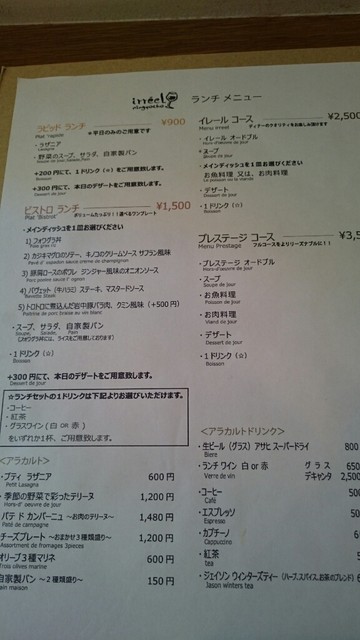 irréel
ランチ メニュー
ラピッド ランチ ¥900
Plat rapide ＊平日のみのご用意です
・ラザニア
Lasagna
・野菜のスープ、サラダ、自家製パン
+200円にて、1ドリンク(¤)をご用意致します。
Boisson
+300円にて、本日のデザートをご用意致します。
Dessert de jour
ビストロ ランチ ¥1,500
Plat 'Bistrot' ボリュームたっぷり!!選べるワンプレート
・メインディッシュを1皿お選びください
1) フォワグラ丼
2) カジキマグロのソテー、キノコのクリームソース サフラン風味
3) 豚肩ロースのポワレ ジンジャー風味のオニオンソース
4) バヴェット(牛ハラミ) ステーキ、マスタードソース
Bavette steak
5) トロトロに煮込んだ岩中豚バラ肉、クミン風味 (+500円)
・スープ、サラダ、自家製パン
Soupe, Salade, Pain
(フォワグラ丼には、ライスをご用意しております)
・1ドリンク (☆)
Boisson
+300円にて、本日のデザートをご用意致します。
Dessert de jour
☆ランチセットの1ドリンクは下記よりお選びいただけます。
・コーヒー
・紅茶
・グラスワイン ( 白 OR 赤 )
をいずれか1杯、ご用意致します。
<アラカルト>
・プティ ラザニア 600円
Petit Lasagna
・季節の野菜で彩ったテリーヌ 1,200円
Hors-d' oeuvre de jour
パテ ド カンパーニュ ～お肉のテリーヌ～ 1,480円
Paté de campagne
チーズプレート ～おまかせ3種類盛り～ 1,200円
Assortment de fromages 3pieces
オリーブ3種マリネ 600円
Trois olives marine
自家製パン ～2種類盛り～ 150円
ain maison
イレール コース ¥2,500
Menu Irreel ディナーのクオリティをお楽しみ頂けます
・イレール オードブル
Hors-d'œuvre de jour
・スープ
Soupe de jour
・メインディッシュを1皿お選びください
お魚料理 又は、お肉料理
・デザート
Dessert de jour
・1ドリンク (¤)
Boisson
プレステージ コース ¥3,5
Menu Prestage フルコースをよりリーズナブルに!!
・プレステージ オードブル
Hors-d'œuvre de jour
・スープ
Soupe de jour
・お魚料理
Poisson de jour
・お肉料理
Viand de jour
・デザート
Dessert de jour
・1ドリンク (☆)
Boisson
<アラカルトドリンク>
・生ビール (グラス) アサヒ スーパードライ 800
Biere
・ランチ ワイン 白 or 赤 グラス 650
Verre de vin デキャンタ 2,500
・コーヒー 50
Café
・エスプレッソ 50
Espresso
・カプチーノ 6
Cappuccino
・紅茶 5
tea
・ジェイソン ウィンターズティー (ハーブ、スパイス、お茶のブレンド) 6
Jason Winters tea